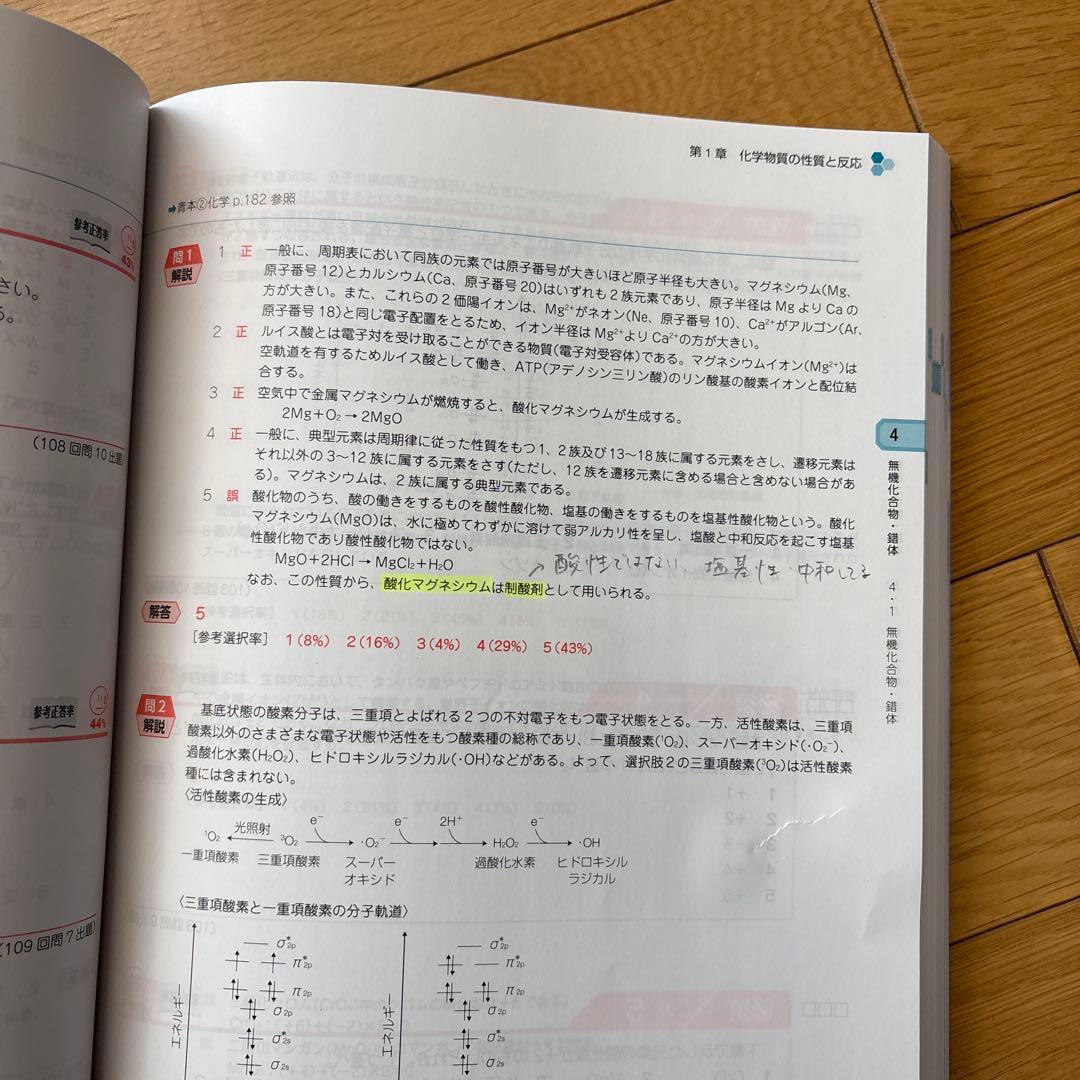 第1章 化学物質の性質と反応
➡青本②化学 p.182 参照
参考正答率
43%
さい。
る。
(108 回問 10 出題)
参考正答率
44%
(109 回問 7 出題)
問1
解説
1 正 一般に、周期表において同族の元素では原子番号が大きいほど原子半径も大きい。マグネシウム(Mg、
原子番号 12)とカルシウム(Ca、原子番号 20)はいずれも 2 族元素であり、原子半径は Mg より Ca の
方が大きい。また、これらの 2 価陽イオンは、Mg²⁺がネオン(Ne、原子番号 10)、Ca²⁺がアルゴン(Ar、
原子番号 18)と同じ電子配置をとるため、イオン半径は Mg²⁺より Ca²⁺の方が大きい。
2 正 ルイス酸とは電子対を受け取ることができる物質(電子対受容体)である。マグネシウムイオン(Mg²⁺)は
空軌道を有するためルイス酸として働き、ATP(アデノシン三リン酸)のリン酸基の酸素イオンと配位結
合する。
3 正 空気中で金属マグネシウムが燃焼すると、酸化マグネシウムが生成する。
2Mg+O₂→2MgO
4 正 一般に、典型元素は周期律に従った性質をもつ 1、2 族及び 13～18 族に属する元素をさし、遷移元素は
それ以外の 3～12 族に属する元素をさす(ただし、12 族を遷移元素に含める場合と含めない場合があ
る)。マグネシウムは、2 族に属する典型元素である。
5 誤 酸化物のうち、酸の働きをするものを酸性酸化物、塩基の働きをするものを塩基性酸化物という。酸化
マグネシウム(MgO)は、水に極めてわずかに溶けて弱アルカリ性を呈し、塩酸と中和反応を起こす塩基
性酸化物であり酸性酸化物ではない。
MgO+2HCl→MgCl₂+H₂O
↗酸性ではない 塩基性・中和してる
なお、この性質から、酸化マグネシウムは制酸剤として用いられる。
解答 5
[参考選択率] 1(8%) 2(16%) 3(4%) 4(29%) 5(43%)
問2
解説
基底状態の酸素分子は、三重項とよばれる 2 つの不対電子をもつ電子状態をとる。一方、活性酸素は、三重項
酸素以外のさまざまな電子状態や活性をもつ酸素種の総称であり、一重項酸素(¹O₂)、スーパーオキシド(・O₂⁻)、
過酸化水素(H₂O₂)、ヒドロキシルラジカル(・OH)などがある。よって、選択肢 2 の三重項酸素(³O₂)は活性酸素
種には含まれない。
〈活性酸素の生成〉
光照射 e⁻ e⁻ 2H⁺ e⁻
¹O₂ ← ³O₂ → ・O₂⁻ → → H₂O₂ → ・OH
一重項酸素 三重項酸素 スーパー 過酸化水素 ヒドロキシル
オキシド ラジカル
〈三重項酸素と一重項酸素の分子軌道〉
エネルギー
σ*2p
π*2p
π2p
σ2p
σ*2s
σ2s
エネルギー
σ*2p
π*2p
π2p
σ2p
σ*2s
σ2s
4
無機化合物・錯体
4・1 無機化合物・錯体